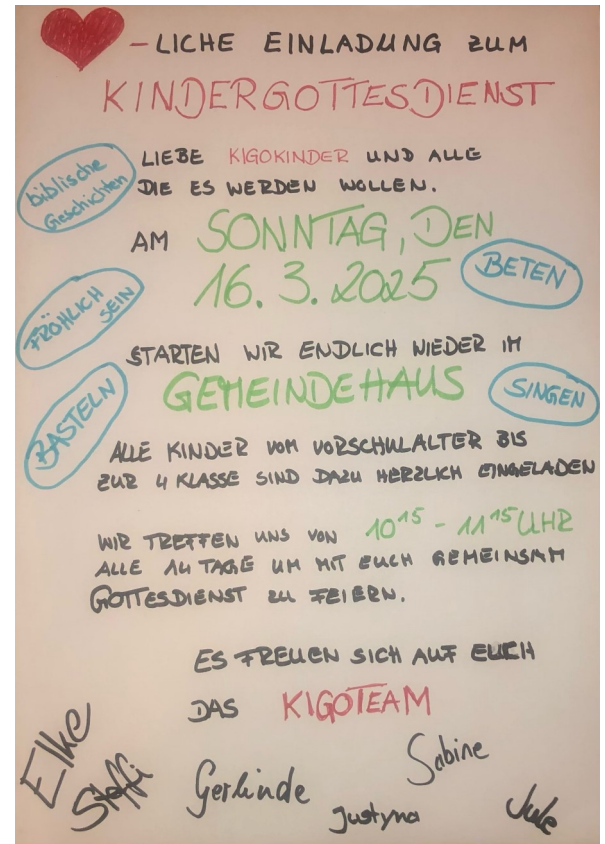 -LICHE EINLADUNG ZUM
KINDERGOTTESDIENST
biblische
Geschichten
LIEBE KIGOKINDER UND ALLE
DIE ES WERDEN WOLLEN.
AM SONNTAG, DEN
16. 3. 2025
BETEN
FRÖHLICH
SEIN
STARTEN WIR ENDLICH WIEDER IM
GEMEINDEHAUS
SINGEN
BASTELN
ALLE KINDER VOM VORSCHULALTER BIS
ZUR 4 KLASSE SIND DAZU HERZLICH EINGELADEN
WIR TREFFEN UNS VON 10¹⁵ - 11¹⁵ UHR
ALLE 14 TAGE UM MIT EUCH GEMEINSAM
GOTTESDIENST ZU FEIERN.
ES FREUEN SICH AUF EUCH
DAS KIGOTEAM
Elke
Steffi
Gerlinde
Justyna
Sabine
Jule